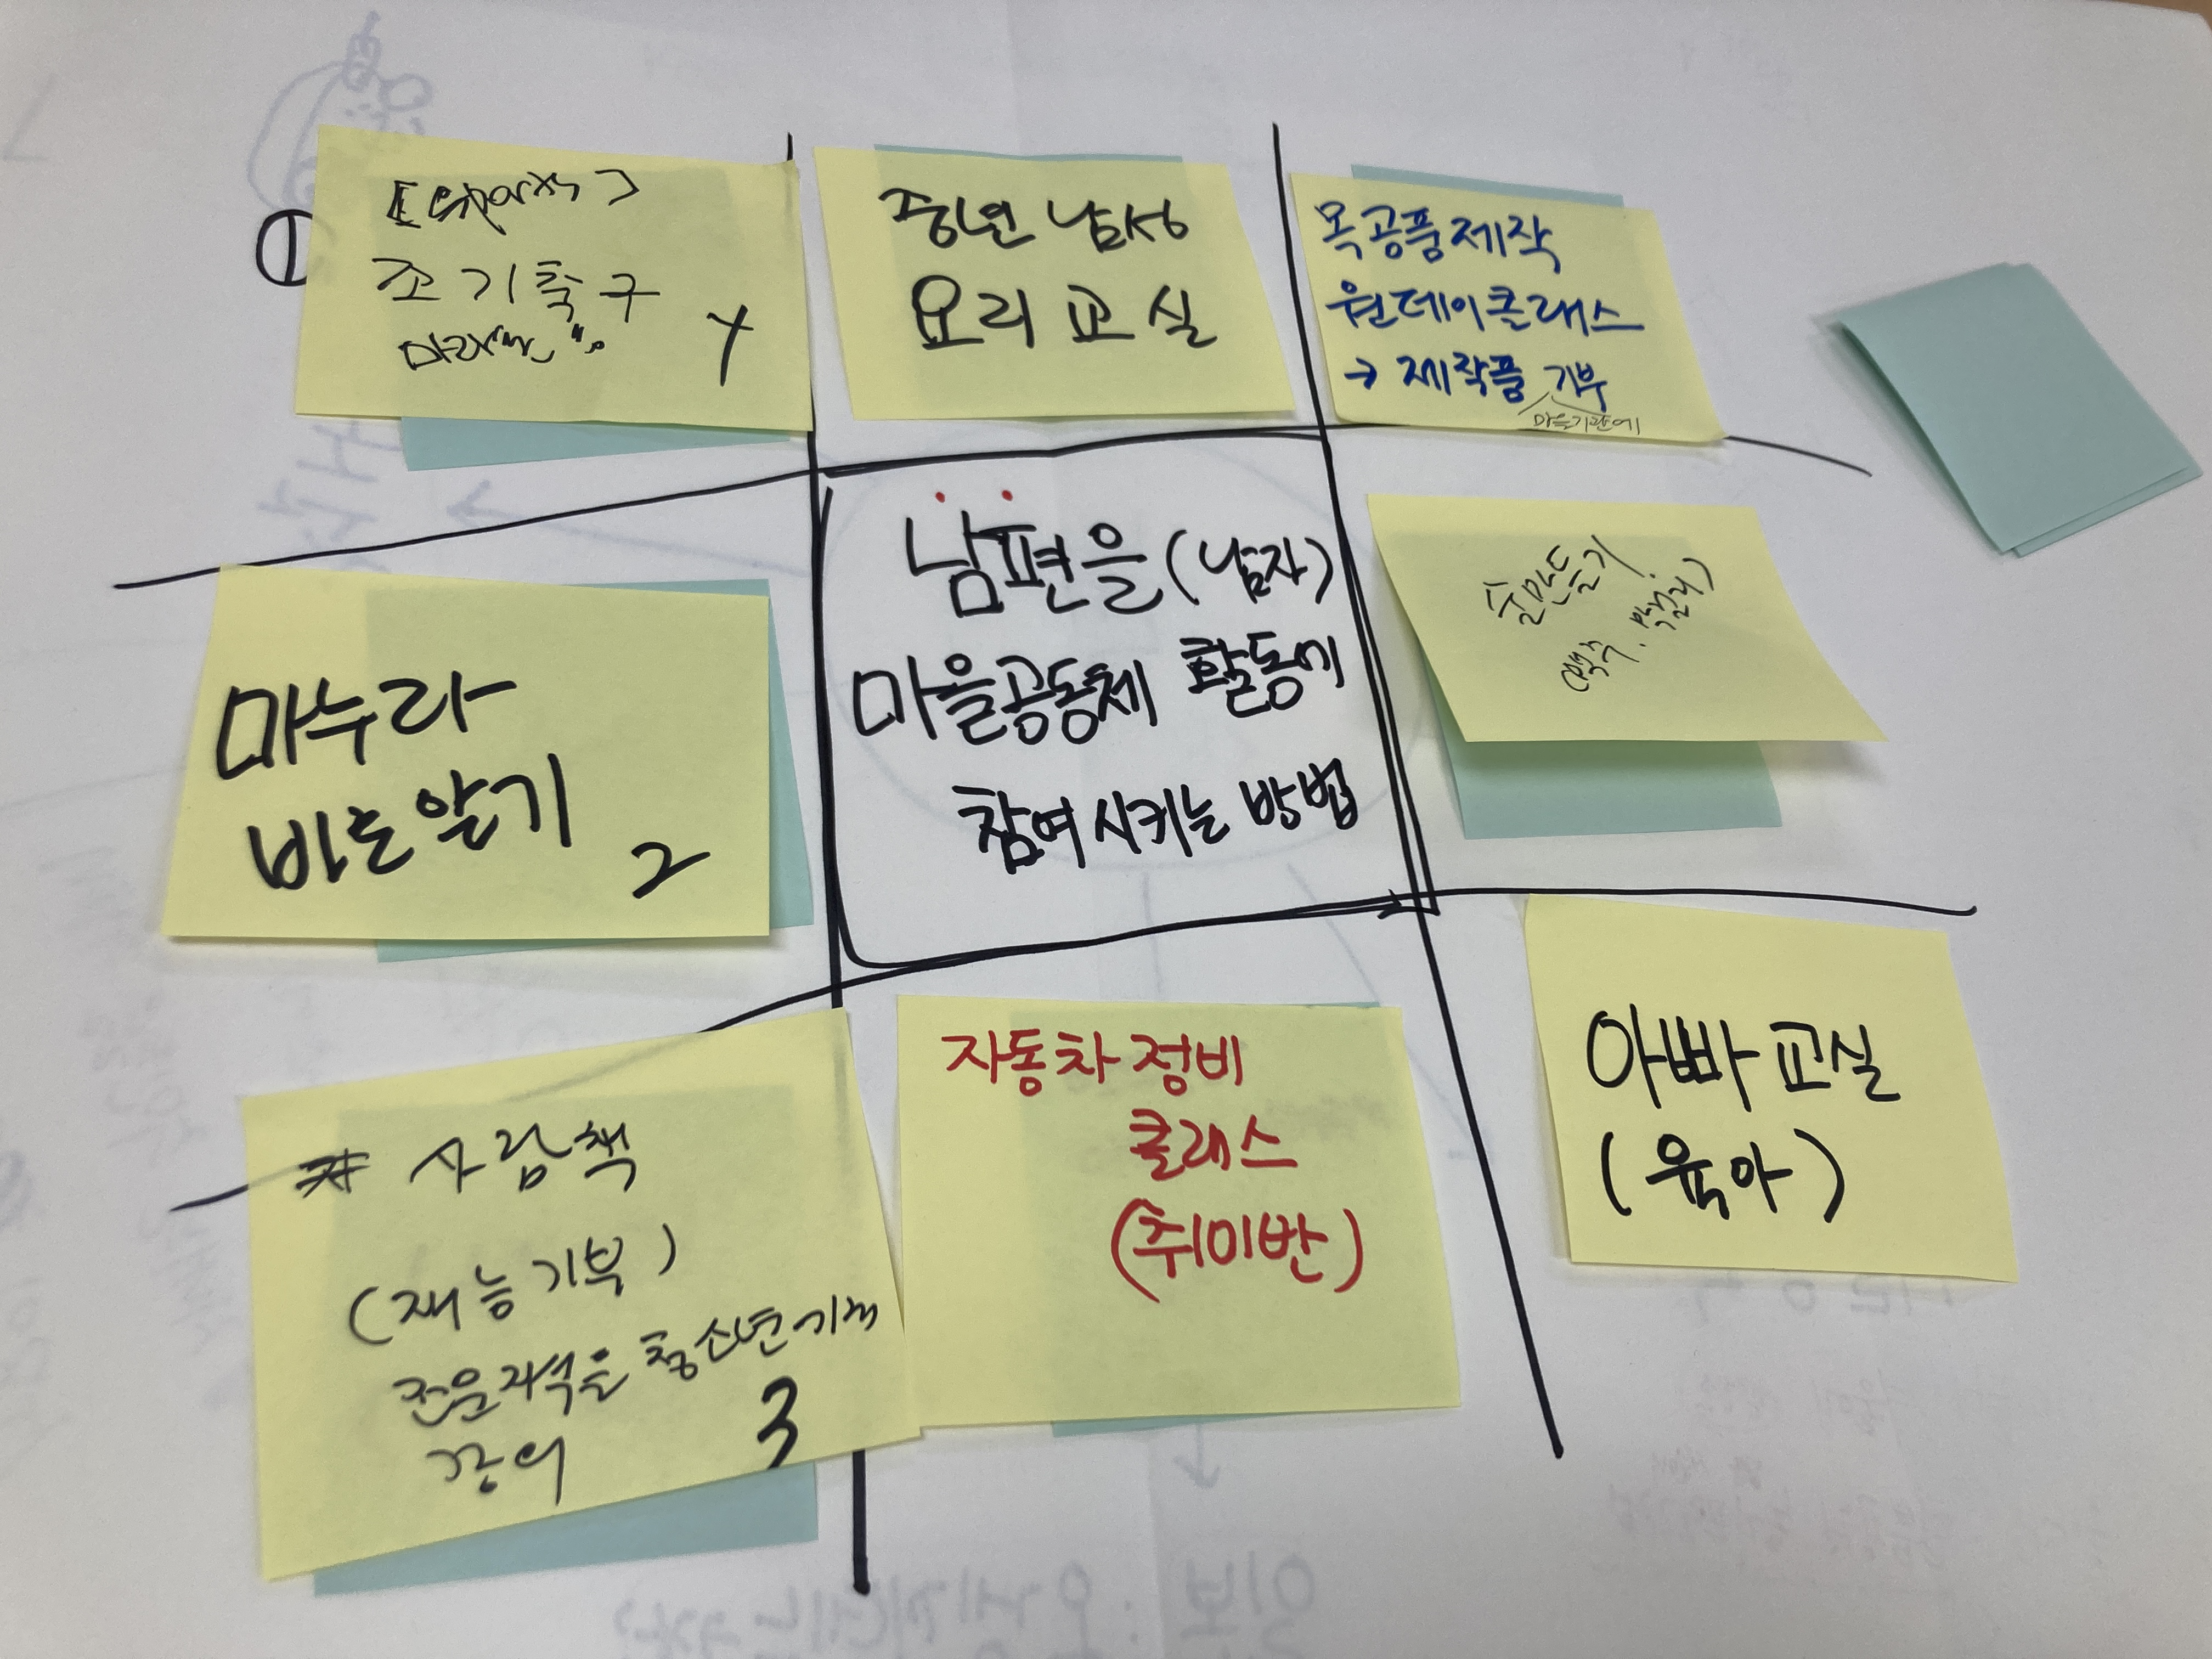 ①
조기축구
마라톤
중년 남성
요리교실
목공품제작
원데이클래스
→ 제작품 기부
마을기관에
마누라
바로알기
2
남편을 (남자)
마을공동체 활동에
참여시키는 방법
술만들기
(맥주. 막걸리)
* 사람책
(재능기부)
전문지식을 청소년기관
강의
3
자동차 정비
클래스
(취미반)
아빠 교실
(육아)